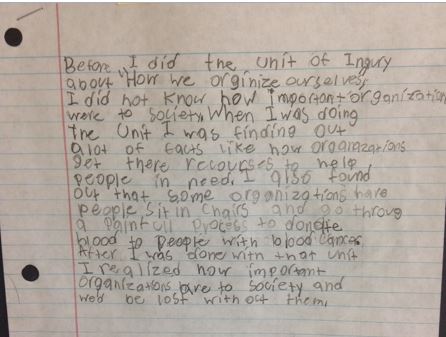 Before I did the unit of Inqury
about "How we orginize ourselves,"
I did not know how important organization
were to society. When I was doing
the unit I was finding out
alot of facts like how organizations
get there recourses to help
people in need. I also found
out that some organizations have
people sit in chairs and go throug
a painfull process to donate
blood to people with blood cancer.
After I was done with that unit
I realized how important
organizations are to society and
wed be lost with out them.